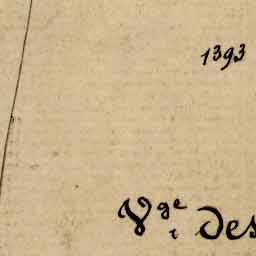 1393
Vge des